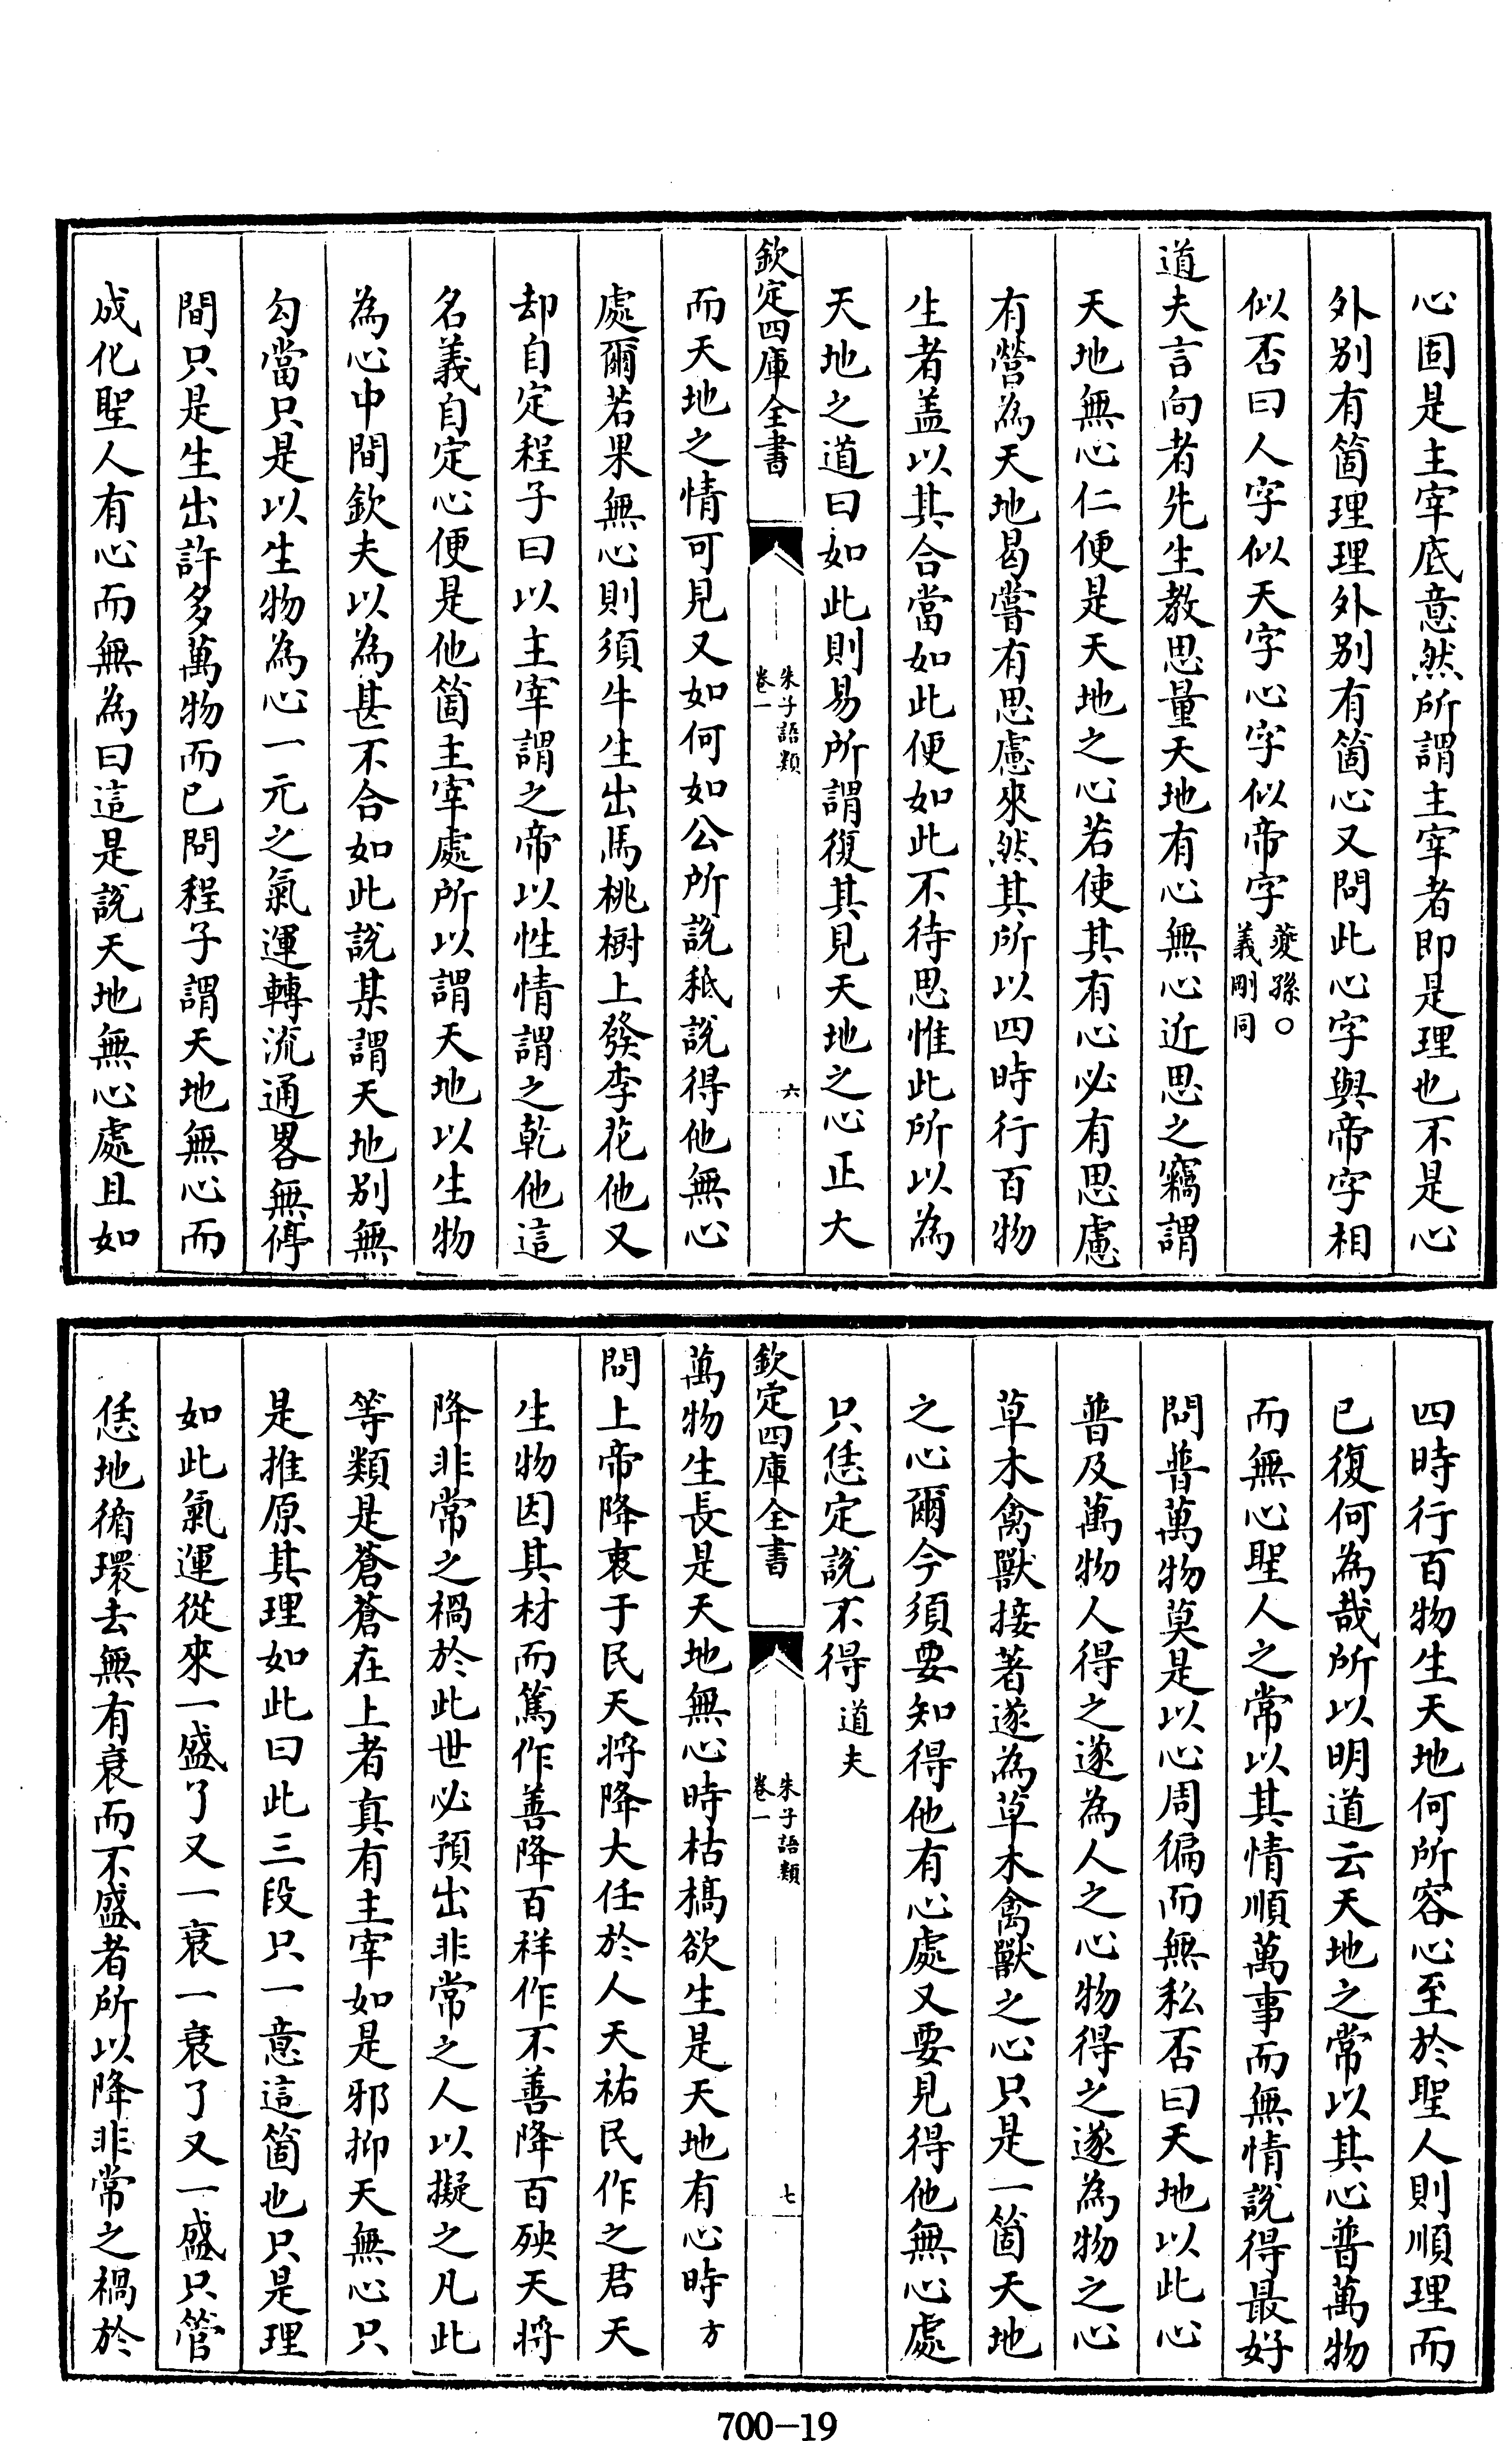 心固是主宰底意然所謂主宰者即是理也不是心
外别有箇理理外别有箇心又問此心字與帝字相
似否曰人字似天字心字似帝字夔孫○義剛同
道夫言向者先生教思量天地有心無心近思之竊謂
天地無心仁便是天地之心若使其有心必有思慮
有營為天地曷嘗有思慮來然其所以四時行百物
生者盖以其合當如此便如此不待思惟此所以為
天地之道曰如此則易所謂復其見天地之心正大
欽定四庫全書
朱子語類
卷一
六
而天地之情可見又如何如公所說秖說得他無心
處爾若果無心則須牛生出馬桃樹上發李花他又
却自定程子曰以主宰謂之帝以性情謂之乾他這
名義自定心便是他箇主宰處所以謂天地以生物
為心中間欽夫以為甚不合如此說某謂天地别無
勾當只是以生物為心一元之氣運轉流通畧無停
間只是生出許多萬物而已問程子謂天地無心而
成化聖人有心而無為曰這是說天地無心處且如
四時行百物生天地何所容心至於聖人則順理而
已復何為哉所以明道云天地之常以其心普萬物
而無心聖人之常以其情順萬事而無情說得最好
問普萬物莫是以心周徧而無私否曰天地以此心
普及萬物人得之遂為人之心物得之遂為物之心
草木禽獸接著遂為草木禽獸之心只是一箇天地
之心爾今須要知得他有心處又要見得他無心處
只恁定說不得道夫
欽定四庫全書
朱子語類
卷一
七
萬物生長是天地無心時枯槁欲生是天地有心時方
問上帝降衷于民天將降大任於人天祐民作之君天
生物因其材而篤作善降百祥作不善降百殃天將
降非常之禍於此世必預出非常之人以擬之凡此
等類是蒼蒼在上者真有主宰如是邪抑天無心只
是推原其理如此曰此三段只一意這箇也只是理
如此氣運從來一盛了又一衰一衰了又一盛只管
恁地循環去無有衰而不盛者所以降非常之禍於
700-19